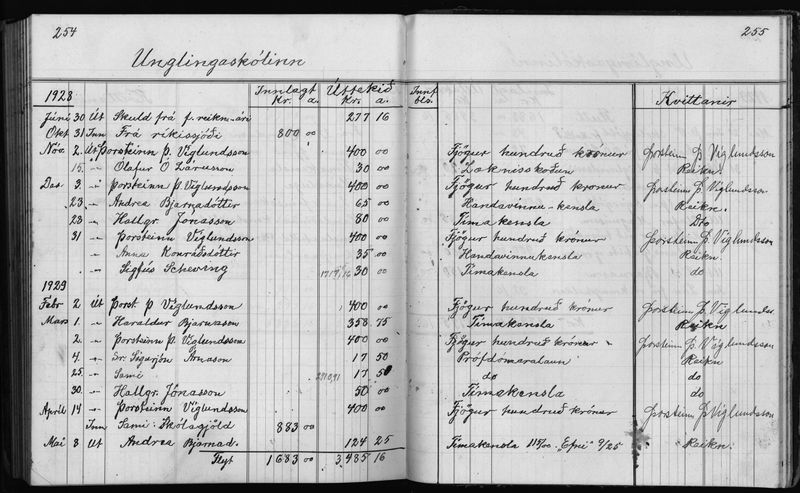 254
255
Unglingaskólinn
Innlagt Úttekið Innf.
1928 kr. a. kr. a. bls. Kvittanir
Júní 30 Út Skuld frá f. reikn-ári 277 16
Okt 31 Inn Frá ríkissjóði 800 00
Nóv. 2. Út Þorsteinn Þ. Víglundsson 400 00 Fjögur hundruð krónur Þorsteinn Þ. Víglundsson
15. " Ólafur Ó Lárusson 30 00 Læknisskoðun Reikn.
Des 3. " Þorsteinn Þ. Víglundsson 400 00 Fjögur hundruð krónur Þorsteinn Þ. Víglundsson
23 " Andrea Bjarnadóttir 65 00 Handavinnu-kensla Reikn.
23 " Hallgr Jónasson 80 00 Tímakensla Do
31 " Þorsteinn Víglundsson 400 00 Fjögur hundruð krónur Þorsteinn Þ. Víglundsson
" Anna Konráðsdóttir 35 00 Handavinnukensla Reikn.
" Sigfús Scheving 1717/16 30 00 Tímakensla do
1929
Febr 2 Út Þorst Þ Víglundsson 400 00 Fjögur hundruð krónur Þorsteinn Þ. Víglundss
Mars 1. " Haraldur Bjarnason 358 75 Tímakensla Reikn
2. " Þorsteinn Þ. Víglundsson 400 00 Fjögur hundruð krónur - Þorsteinn Þ. Víglundsson
4. " Sr. Sigurjón Árnason 17 50 Prófdómaralaun Reikn
25. " Sami 17 50 do do
30. " Hallgr. Jónasson 50 00 Tímakensla do
Apríl 14 " Þorsteinn Víglundsson 400 00 Fjögur hundruð krónur Þorsteinn Þ Víglundsson
Inn Sami: Skólagjöld 883 00
Mai 8 Út Andrea Bjarnad. 124 25 Tímakensla 115/00. "Efni" 9/25 Reikn.
Flyt 1683 00 3485 16